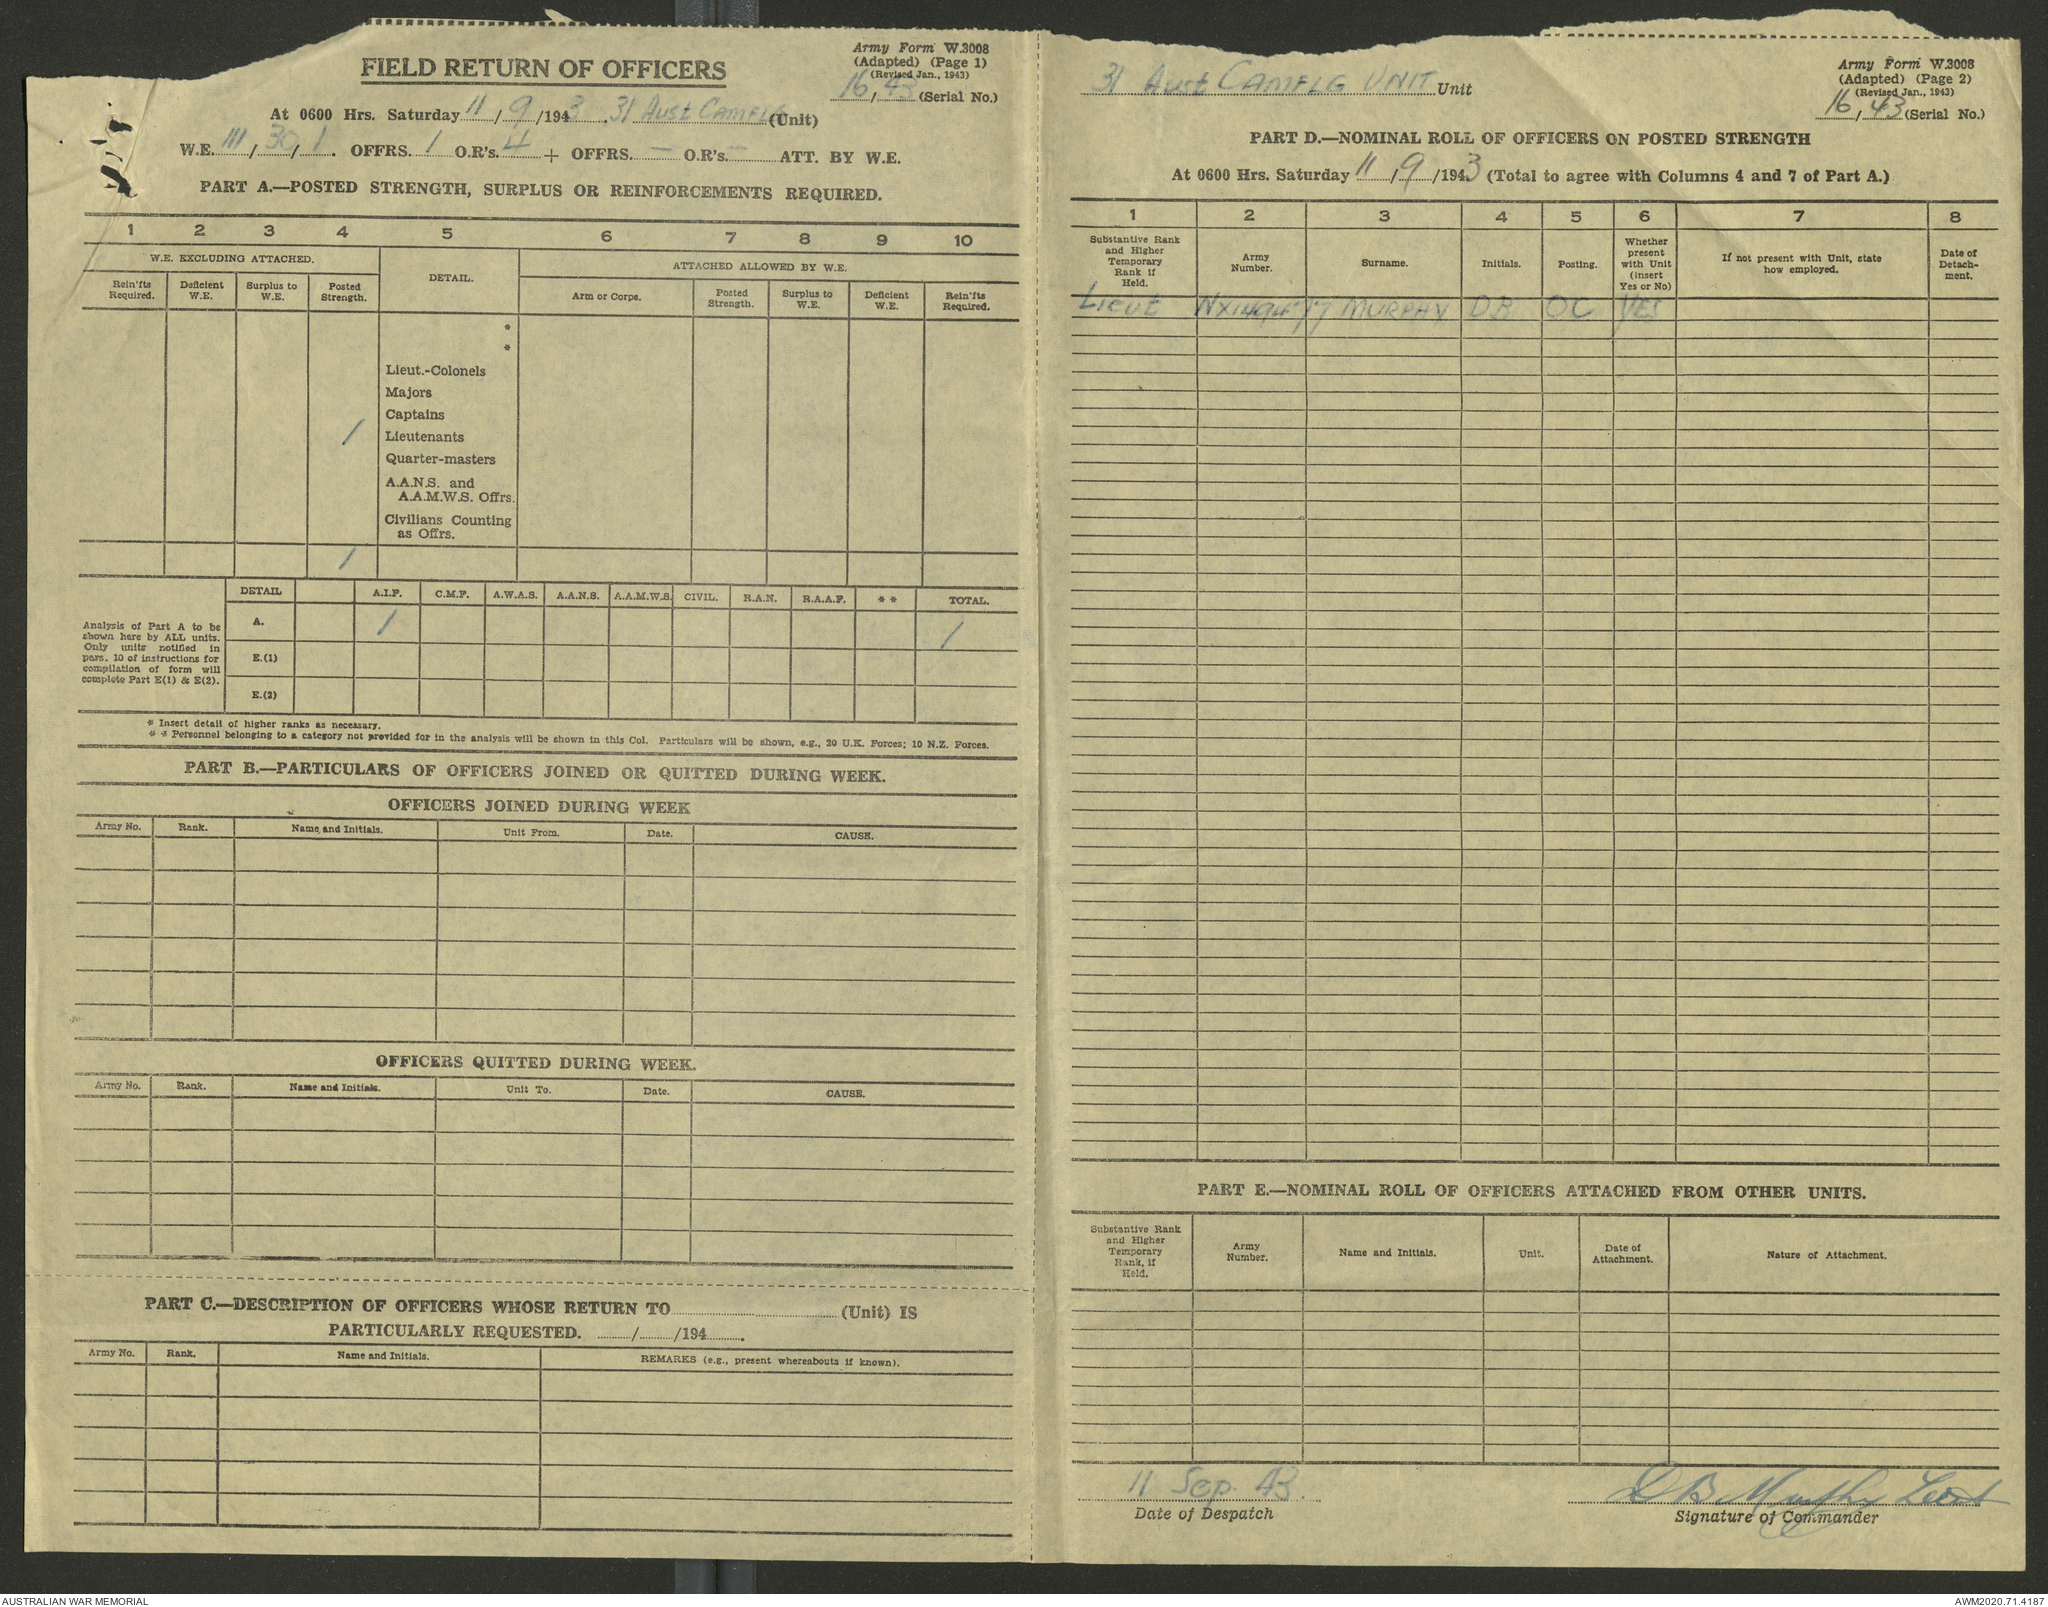 Army Form W.3008
(Adapted) (Page 1)
(Revised Jan., 1943)
16, 43 (Serial No.)
FIELD RETURN OF OFFICERS
At 0600 Hrs. Saturday 11/9/1943. 31 Aust CAMFLG (Unit)
W.E. III, 30, 1. OFFRS. 1 O.R's. 4 + OFFRS. — O.R's. — ATT. BY W.E.
PART A.—POSTED STRENGTH, SURPLUS OR REINFORCEMENTS REQUIRED.
1 2 3 4 5 6 7 8 9 10
W.E. EXCLUDING ATTACHED. DETAIL. ATTACHED ALLOWED BY W.E.
Rein'fts Required. Deficient W.E. Surplus to W.E. Posted Strength. Arm or Corps. Posted Strength. Surplus to W.E. Deficient W.E. Rein'fts Required.
*
*
Lieut.-Colonels
Majors
Captains
1 Lieutenants
Quarter-masters
A.A.N.S. and
A.A.M.W.S. Offrs.
Civilians Counting
as Offrs.
1
DETAIL A.I.F. C.M.F. A.W.A.S. A.A.N.S. A.A.M.W.S. CIVIL. R.A.N. R.A.A.F. * * TOTAL.
Analysis of Part A to be
shown here by ALL units.
Only units notified in
para. 10 of instructions for
compilation of form will
complete Part E(1) & E(2).
A. 1 1
E.(1)
E.(2)
* Insert detail of higher ranks as necessary.
* * Personnel belonging to a category not provided for in the analysis will be shown in this Col. Particulars will be shown, e.g., 20 U.K. Forces; 10 N.Z. Forces.
PART B.—PARTICULARS OF OFFICERS JOINED OR QUITTED DURING WEEK.
OFFICERS JOINED DURING WEEK
Army No. Rank. Name and Initials. Unit From. Date. CAUSE.
OFFICERS QUITTED DURING WEEK.
Army No. Rank. Name and Initials. Unit To. Date. CAUSE.
PART C.—DESCRIPTION OF OFFICERS WHOSE RETURN TO (Unit) IS
PARTICULARLY REQUESTED. / /194 .
Army No. Rank. Name and Initials. REMARKS (e.g., present whereabouts if known).
31 Aust CAMFLG UNIT Unit
Army Form W.3008
(Adapted) (Page 2)
(Revised Jan., 1943)
16, 43 (Serial No.)
PART D.—NOMINAL ROLL OF OFFICERS ON POSTED STRENGTH
At 0600 Hrs. Saturday 11/9/1943 (Total to agree with Columns 4 and 7 of Part A.)
1 2 3 4 5 6 7 8
Substantive Rank and Higher Temporary Rank if Held. Army Number. Surname. Initials. Posting. Whether present with Unit (insert Yes or No) If not present with Unit, state how employed. Date of Detachment.
Lieut MURPHY DB OC YES
PART E.—NOMINAL ROLL OF OFFICERS ATTACHED FROM OTHER UNITS.
Substantive Rank and Higher Temporary Rank, if Held. Army Number. Name and Initials. Unit. Date of Attachment. Nature of Attachment.
11 Sep. 43. D B Murphy Lieut
Date of Despatch Signature of Commander
AUSTRALIAN WAR MEMORIAL AWM2020.71.4187